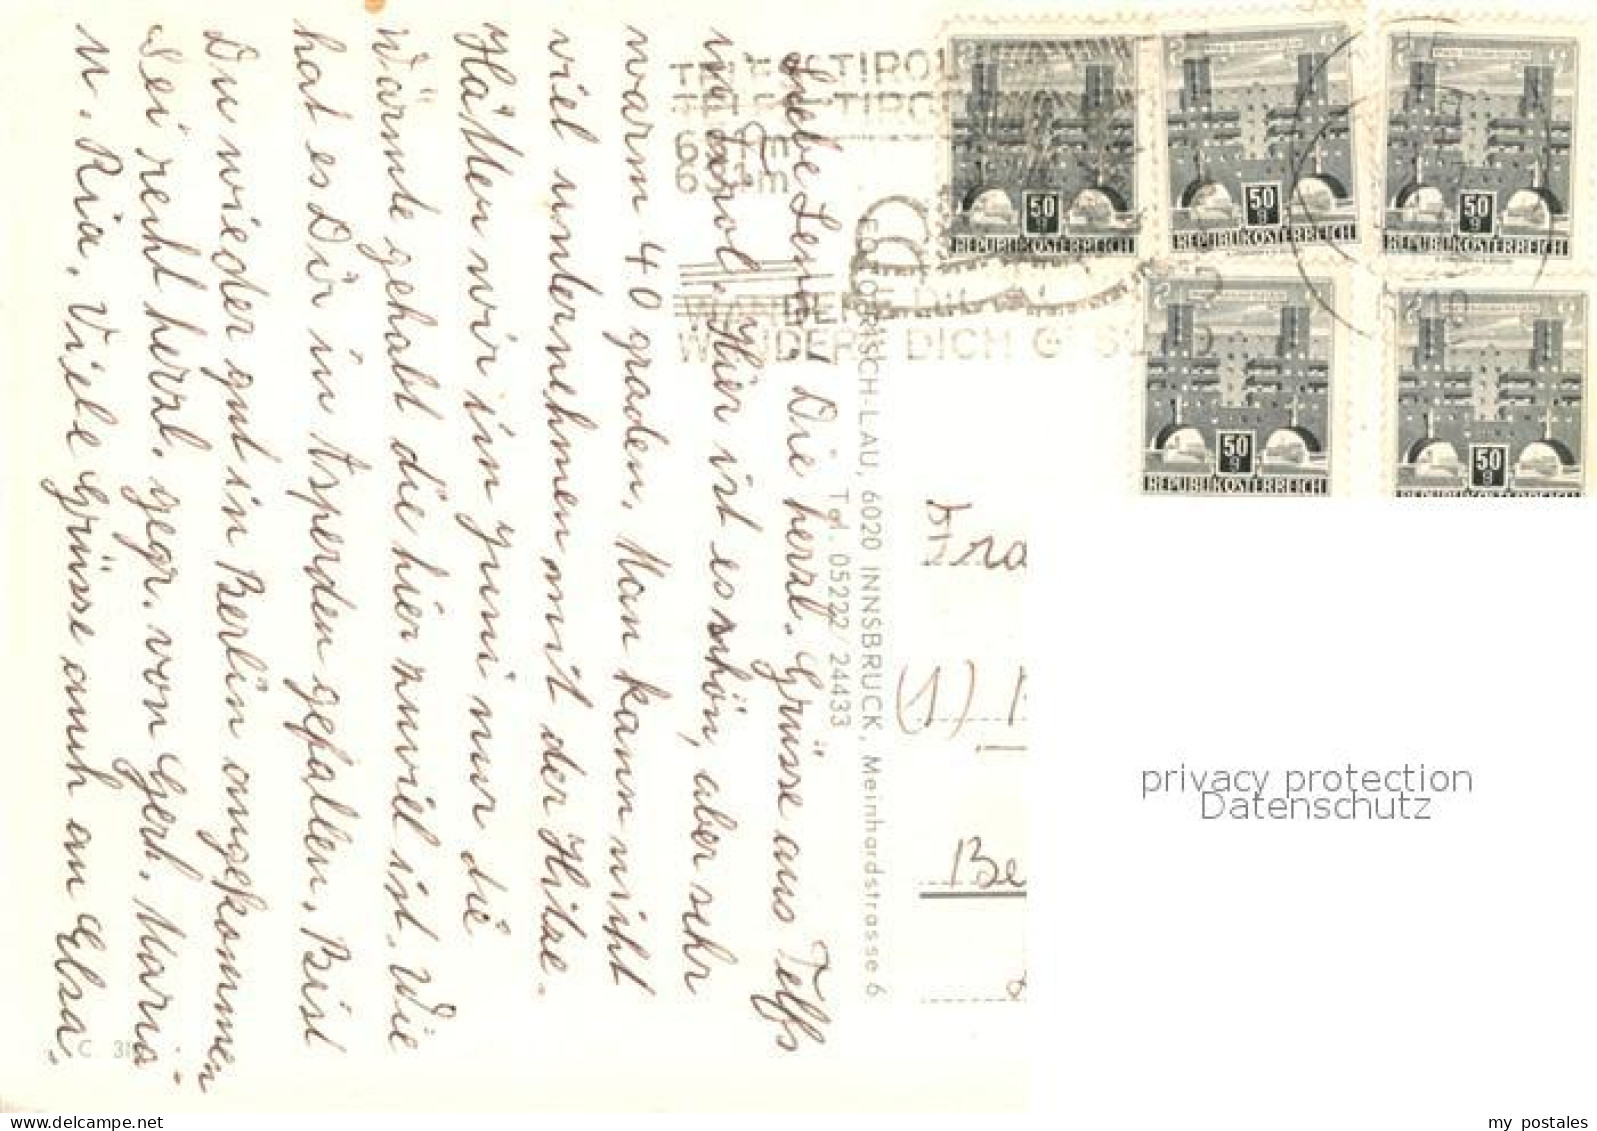 Liebe Lena! Die herzl. Grüsse aus Telfs
in Tirol. Hier ist es schön, aber sehr
warm 40 graden. Man kann nicht
viel unternehmen mit der Hitze.
Hätten wir im Juni nur die
Wärme gehabt die hier zuviel ist. Wie
hat es Dir in Asperden gefallen. Bist
Du wieder gut in Berlin angekommen
Sei recht herzl. gegr. von Gert. Maria
u. Ria. Viele Grüsse auch an Elsa.
C 311
RISCH-LAU, 6020 INNSBRUCK, Meinhardstrasse 6
Tel. 05222/24433
TELFS TIROL
WANDER DICH G SUND
6410
50 g
REPUBLIK ÖSTERREICH
50 g
REPUBLIK ÖSTERREICH
50 g
REPUBLIK ÖSTERREICH
50 g
REPUBLIK ÖSTERREICH
50 g
REPUBLIK ÖSTERREICH
Fra
(1)
Be
privacy protection
Datenschutz
my postales